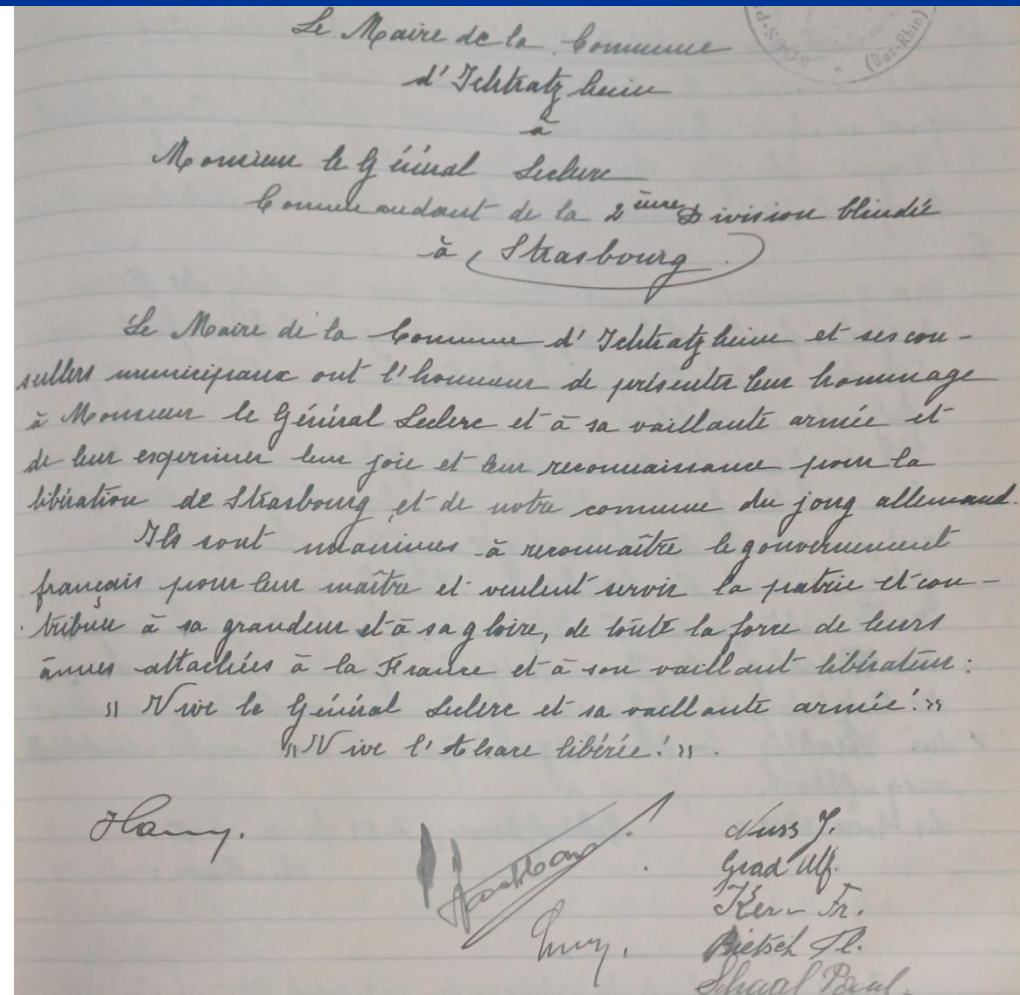 (Bas-Rhin)
Le Maire de la Commune
d'Ichtratzheim
à
Monsieur le Général Leclerc
Commandant de la 2ème Division blindée
à Strasbourg.
Le Maire de la Commune d'Ichtratzheim et ses con-
seillers municipaux ont l'honneur de présenter leur hommage
à Monsieur le Général Leclerc et à sa vaillante armée et
de leur exprimer leur joie et leur reconnaissance pour la
libération de Strasbourg et de notre commune du joug allemand.
Ils sont unanimes à reconnaître le gouvernement
français pour leur maître et veulent servir la patrie et con-
tribuer à sa grandeur et à sa gloire, de toute la force de leurs
âmes attachées à la France et à son vaillant libérateur:
"Vive le Général Leclerc et sa vaillante armée!"
"Vive l'Alsace libérée!".
Nuss J.
Grad Alf.
Kern Fr.
Bietsch Fl.
Schaal Paul.